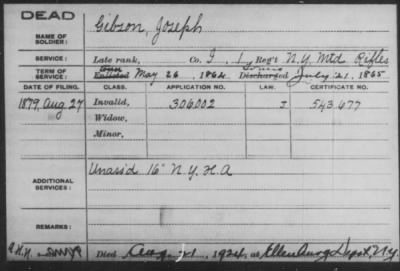 DEAD
NAME OF SOLDIER: Gibson, Joseph
SERVICE: Late rank, Co. I, 1 Reg't N.Y. Mtd Rifles
TERM OF SERVICE: Enlisted May 26, 1864 Discharged July 21, 1865
DATE OF FILING. CLASS. APPLICATION NO. LAW. CERTIFICATE NO.
1879, Aug 27 Invalid, 306002 I 543677
Widow,
Minor,
ADDITIONAL SERVICES: Unas'd 16" N.Y. H.A
REMARKS:
Died Aug 21, 1924, at Ellenburg Depot, N.Y.